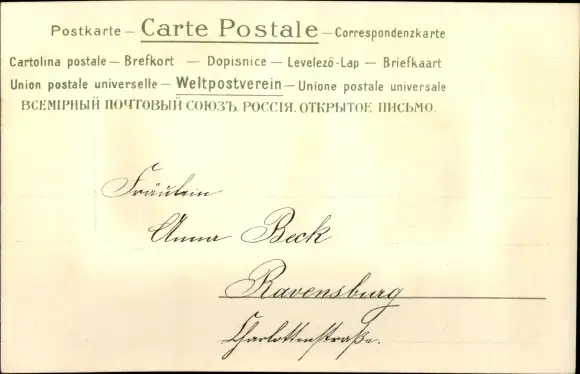 Postkarte — Carte Postale — Correspondenzkarte
Cartolina postale — Brefkort — Dopisnice — Levelező-Lap — Briefkaart
Union postale universelle — Weltpostverein — Unione postale universale
ВСЕМIРНЫЙ ПОЧТОВЫЙ СОЮЗЪ. РОССIЯ. ОТКРЫТОЕ ПИСЬМО.
Fräulein
Anna Beck
Ravensburg
Charlottenstraße.